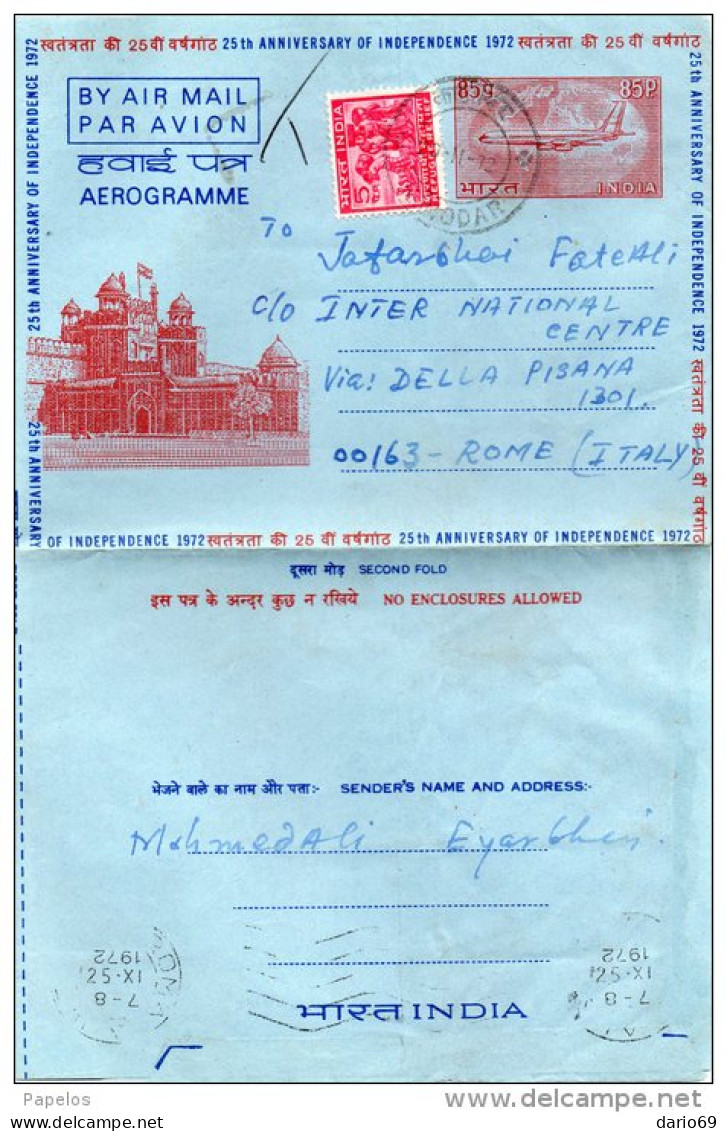 स्वतंत्रता की 25 वीं वर्षगांठ 25th ANNIVERSARY OF INDEPENDENCE 1972 स्वतंत्रता की 25 वीं वर्षगांठ
25th ANNIVERSARY OF INDEPENDENCE 1972
25th ANNIVERSARY
25th ANNIVERSARY OF INDEPENDENCE 1972 स्वतंत्रता की 25 वीं वर्षगांठ
BY AIR MAIL
PAR AVION
हवाई पत्र
AEROGRAMME
भारत INDIA
5
REFUGEE RELIEF
85प 85P
भारत INDIA
To
Jafarbhai FateAli
C/O INTER NATIONAL
CENTRE
Via: DELLA PISANA
1301.
00163 - ROME (ITALY)
OF INDEPENDENCE 1972 स्वतंत्रता की 25 वीं वर्षगांठ 25th ANNIVERSARY OF INDEPENDENCE 1972
दूसरा मोड़ SECOND FOLD
इस पत्र के अन्दर कुछ न रखिये NO ENCLOSURES ALLOWED
भेजने वाले का नाम और पता:- SENDER'S NAME AND ADDRESS:-
MahmedAli Eyarbhai.
7-8
IX·52
1972
7-8
IX·52
1972
भारत INDIA
Papelos
delcampe.net
dario69